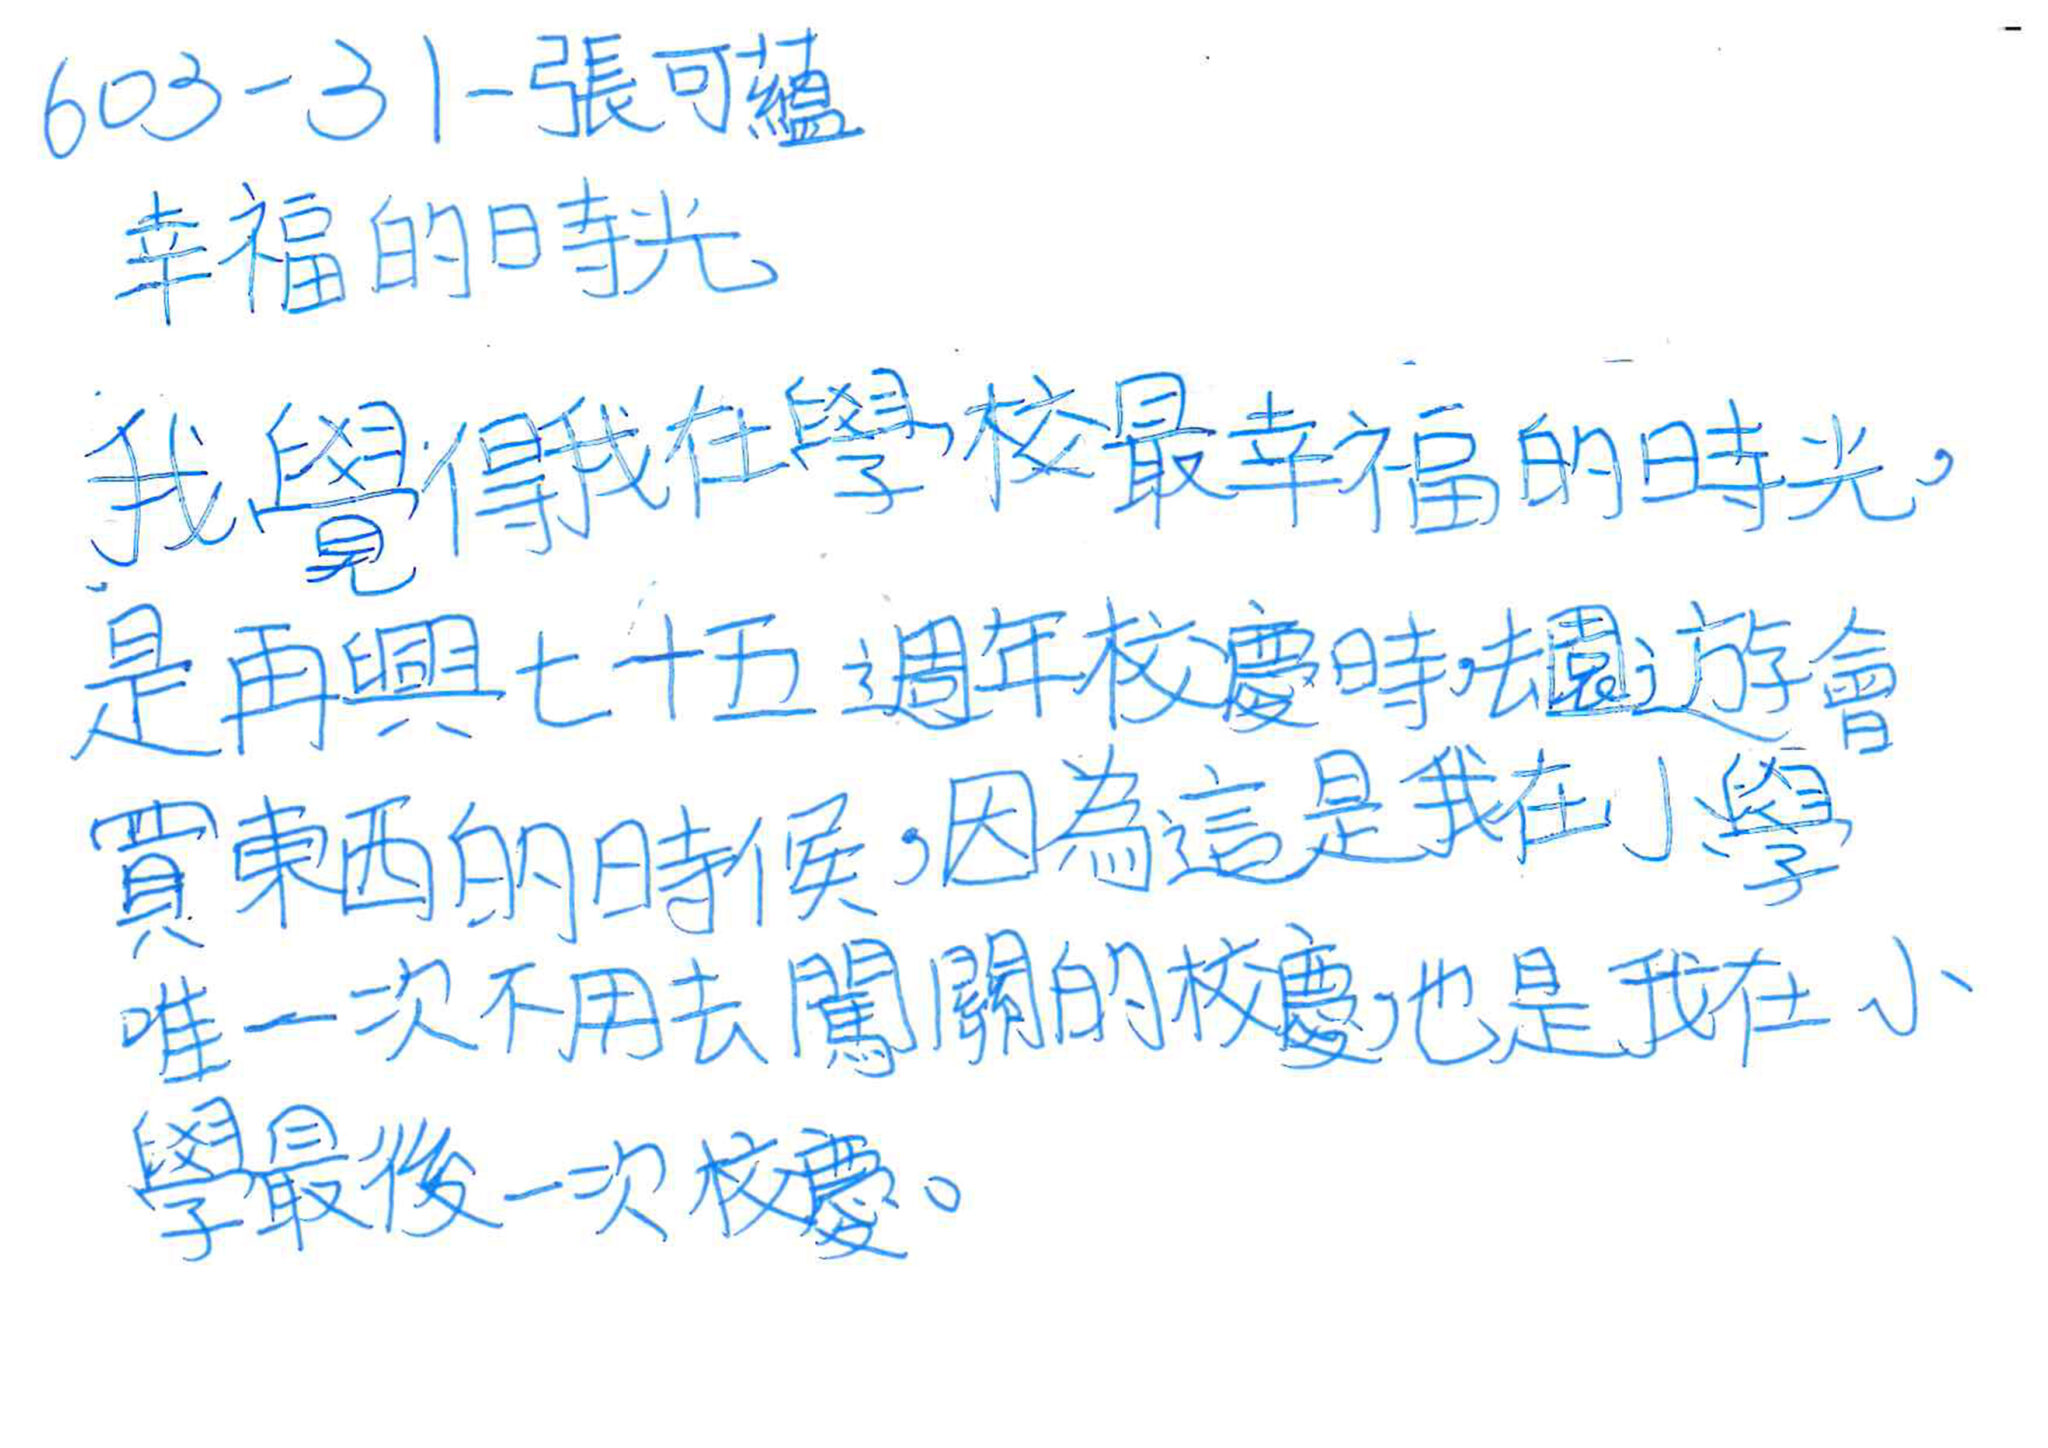 603-31-張可蘊
幸福的時光
我覺得我在學校最幸福的時光，
是再興七十五週年校慶時，去園遊會
買東西的時候，因為這是我在小學
唯一次不用去闖關的校慶，也是我在小
學最後一次校慶。